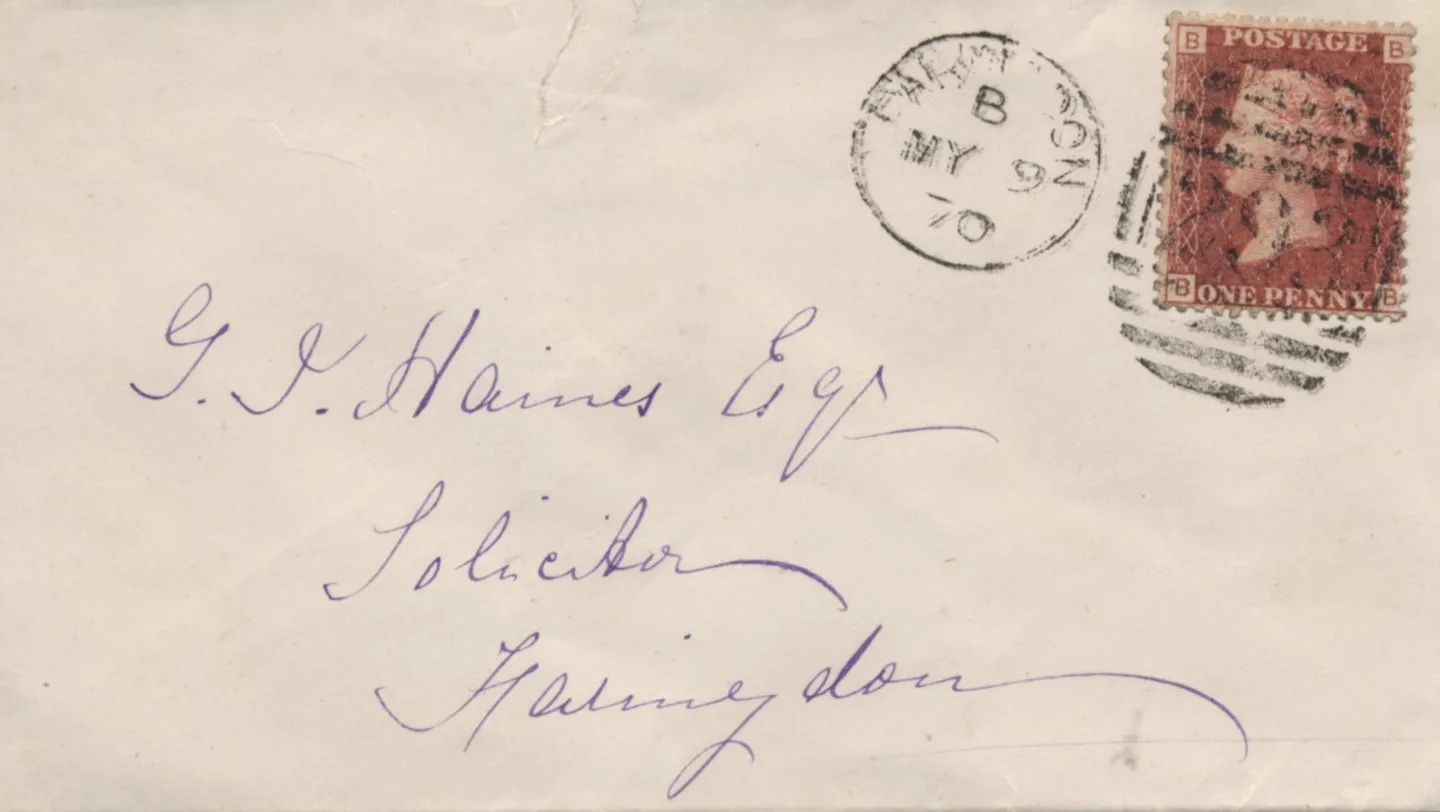 B POSTAGE B
FARINGDON
B
MY 9
70
B ONE PENNY B
G. J. Haines Esqr
Solicitor
Faringdon